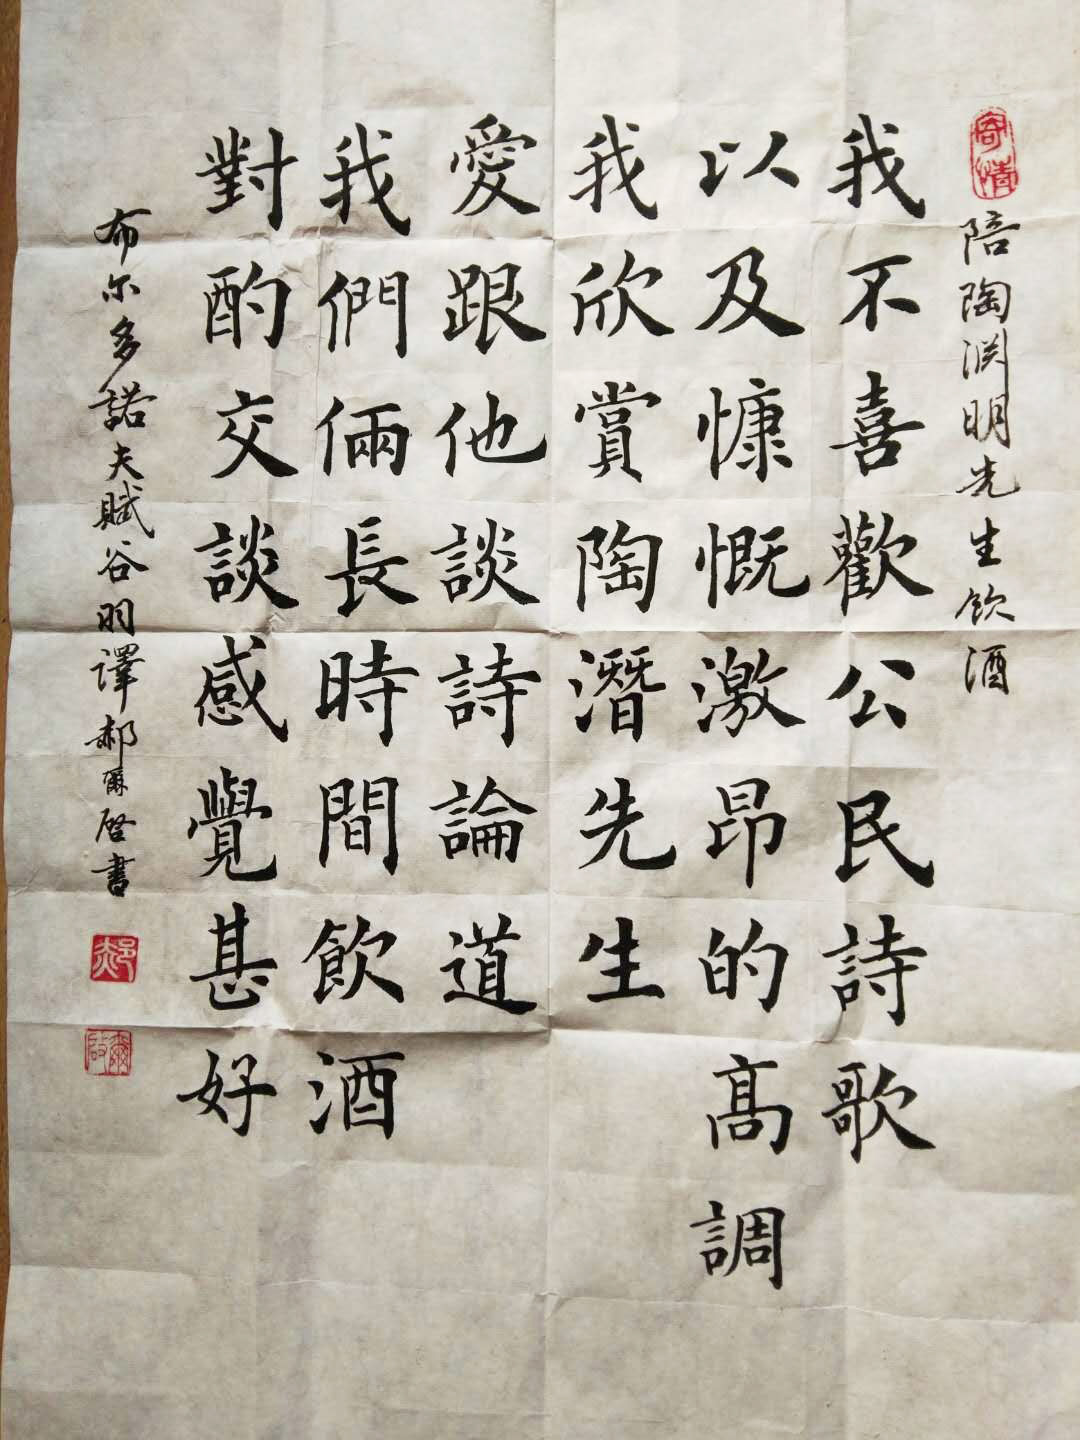 寄情
陪陶渊明先生饮酒
我不喜歡公民詩歌
以及慷慨激昂的高調
我欣賞陶潛先生
愛跟他談詩論道
我們倆長時間飲酒
對酌交談感覺甚好
布尔多諾夫賦谷羽譯郝爾啓書
郝
爾啟